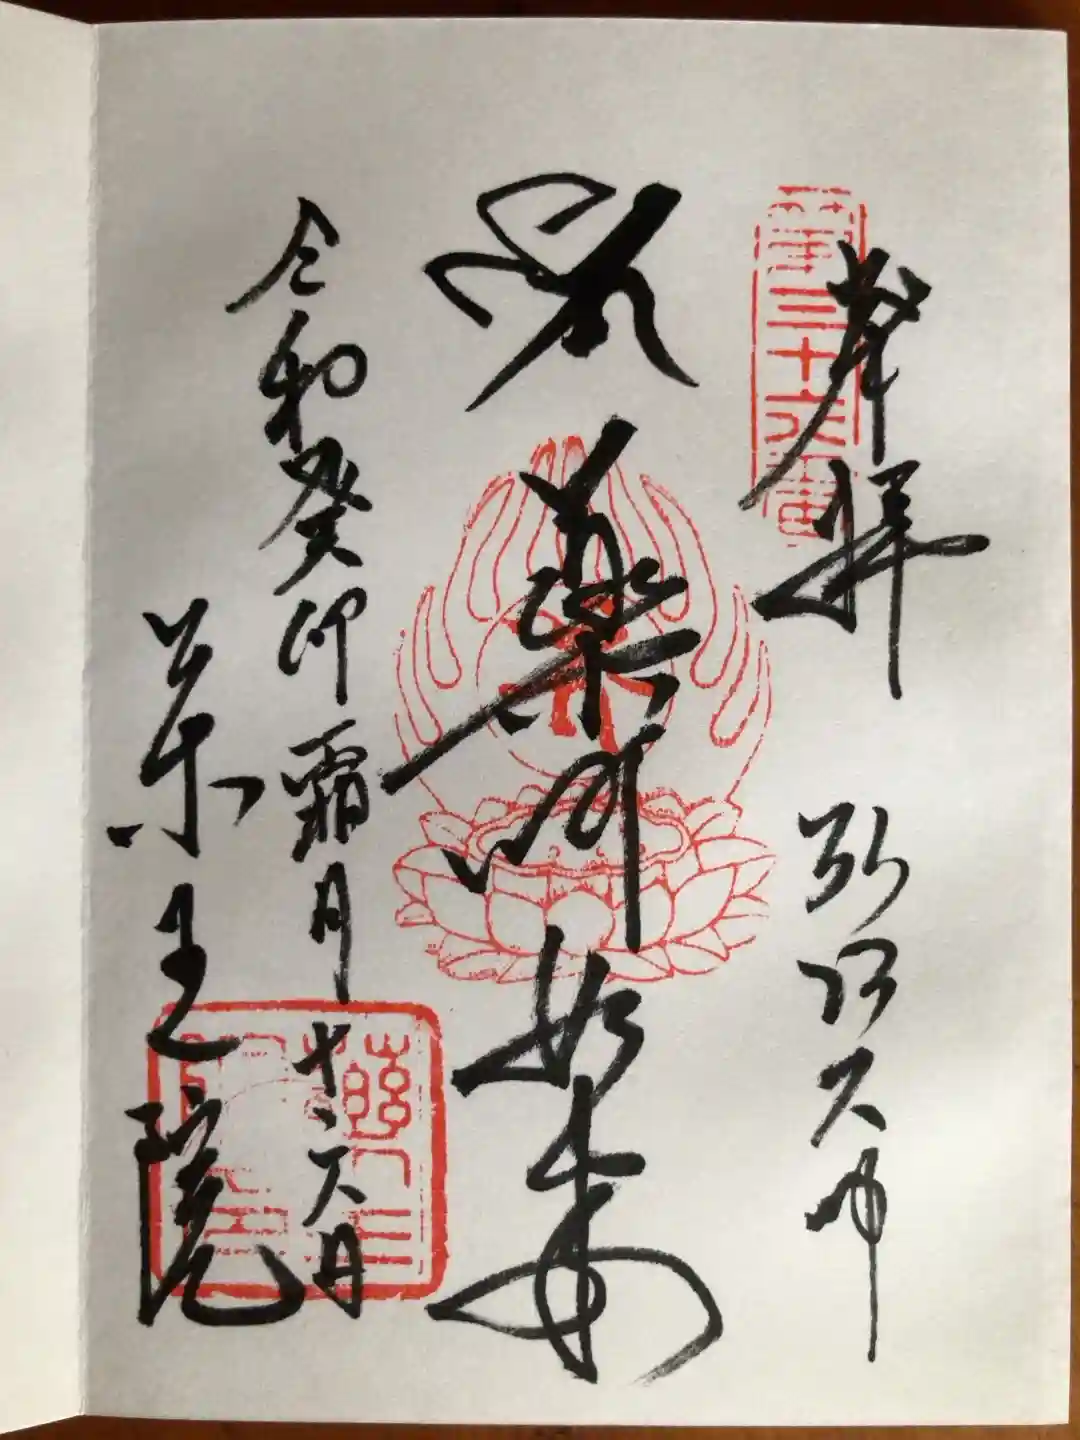 奉拝
弘法大師
第三十六番
薬師如来
令和癸卯霜月十六日
薬王院